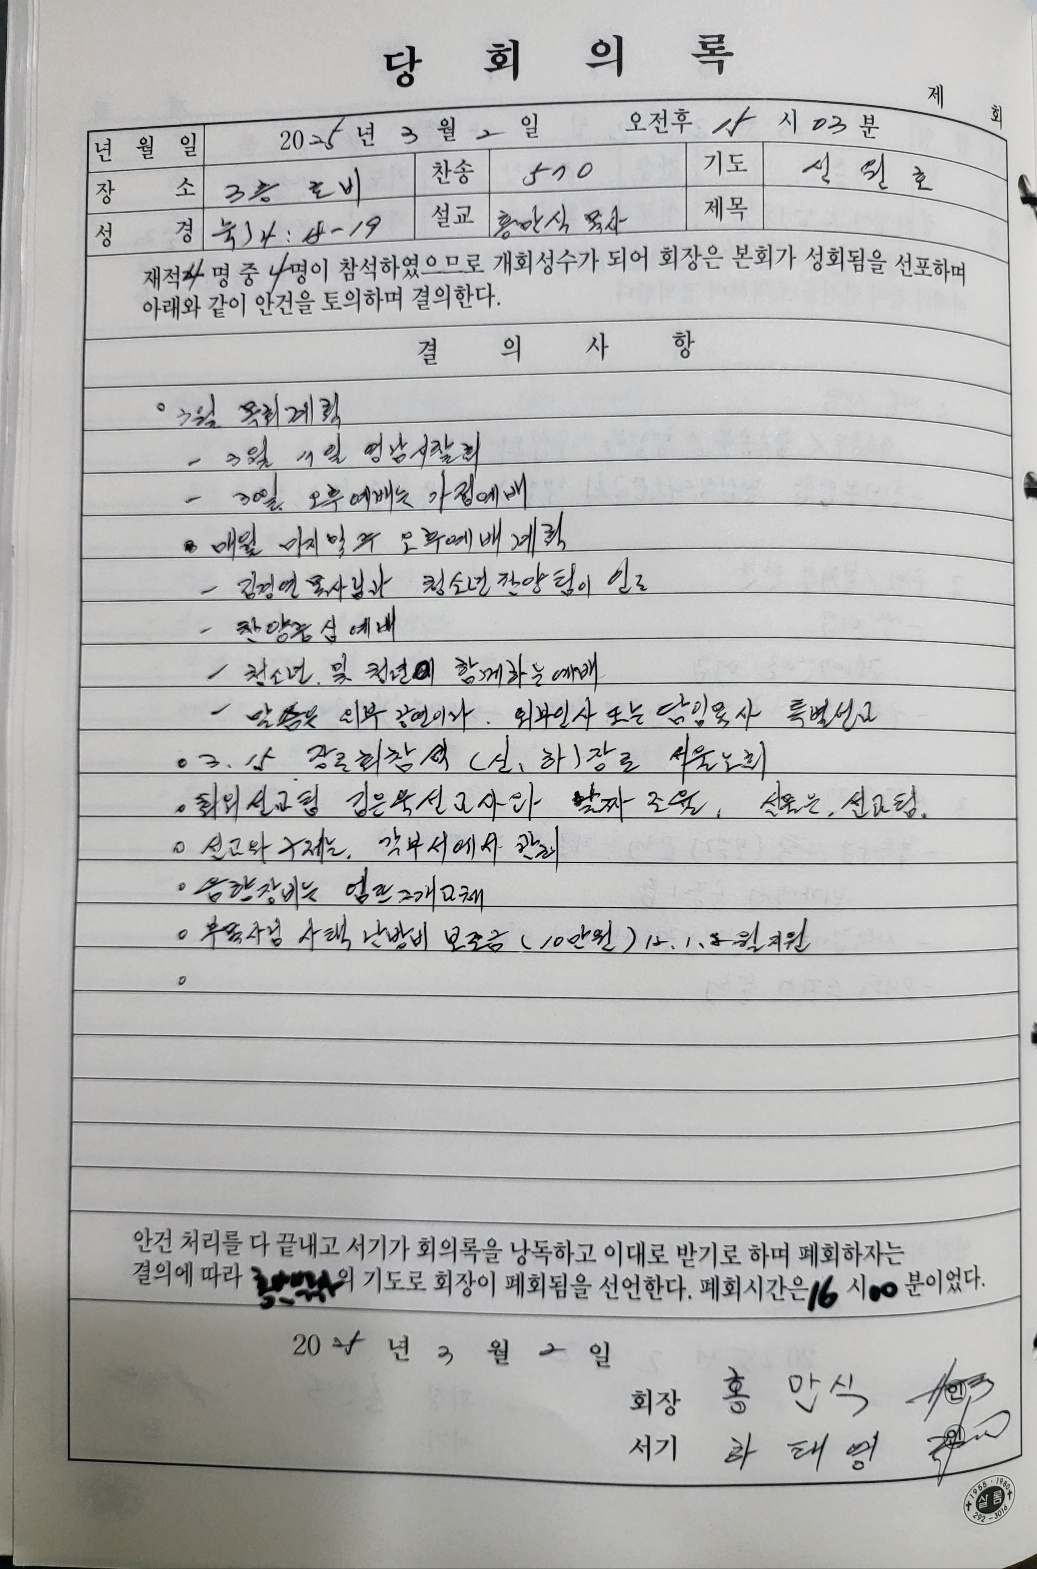 당 회 의 록
제 회
년 월 일 2025 년 3 월 2 일 오전후 15 시 03 분
장 소 3층 로비 찬송 570 기도 신원호
성 경 눅 : -19 설교 홍만식 목사 제목
재적 4 명 중 4 명이 참석하였으므로 개회성수가 되어 회장은 본회가 성회됨을 선포하며
아래와 같이 안건을 토의하며 결의한다.
결 의 사 항
○ 3월 목회계획
- 3월 11일 영남시찰회
- 30일. 오후예배는 가정예배
○ 매월 마지막주 오후예배 계획
- 김경연 목사님과 청소년 찬양팀이 인도
- 찬양중심 예배
- 청소년. 및 청년이 함께하는 예배
- 말씀은 외부 강연이나. 외부인사 또는 담임목사 특별설교
○ 3. 15 장로회참석 (신, 하) 장로 서울노회
○ 해외선교팀 김은옥선교사와 날짜 조율, 선물은, 선교팀.
○ 선교와 구제는, 각부서에서 관리
○ 음향장비는 앰프 2개교체
○ 부목사님 사택 난방비 보조금 (10만원) 12. 1. 2월 지원
○
안건 처리를 다 끝내고 서기가 회의록을 낭독하고 이대로 받기로 하며 폐회하자는
결의에 따라 의 기도로 회장이 폐회됨을 선언한다. 폐회시간은 16 시 00 분이었다.
2025 년 3 월 2 일
회장 홍 만 식 인
서기 하 태 영 인
1968 · 1980
살롬
292-3016